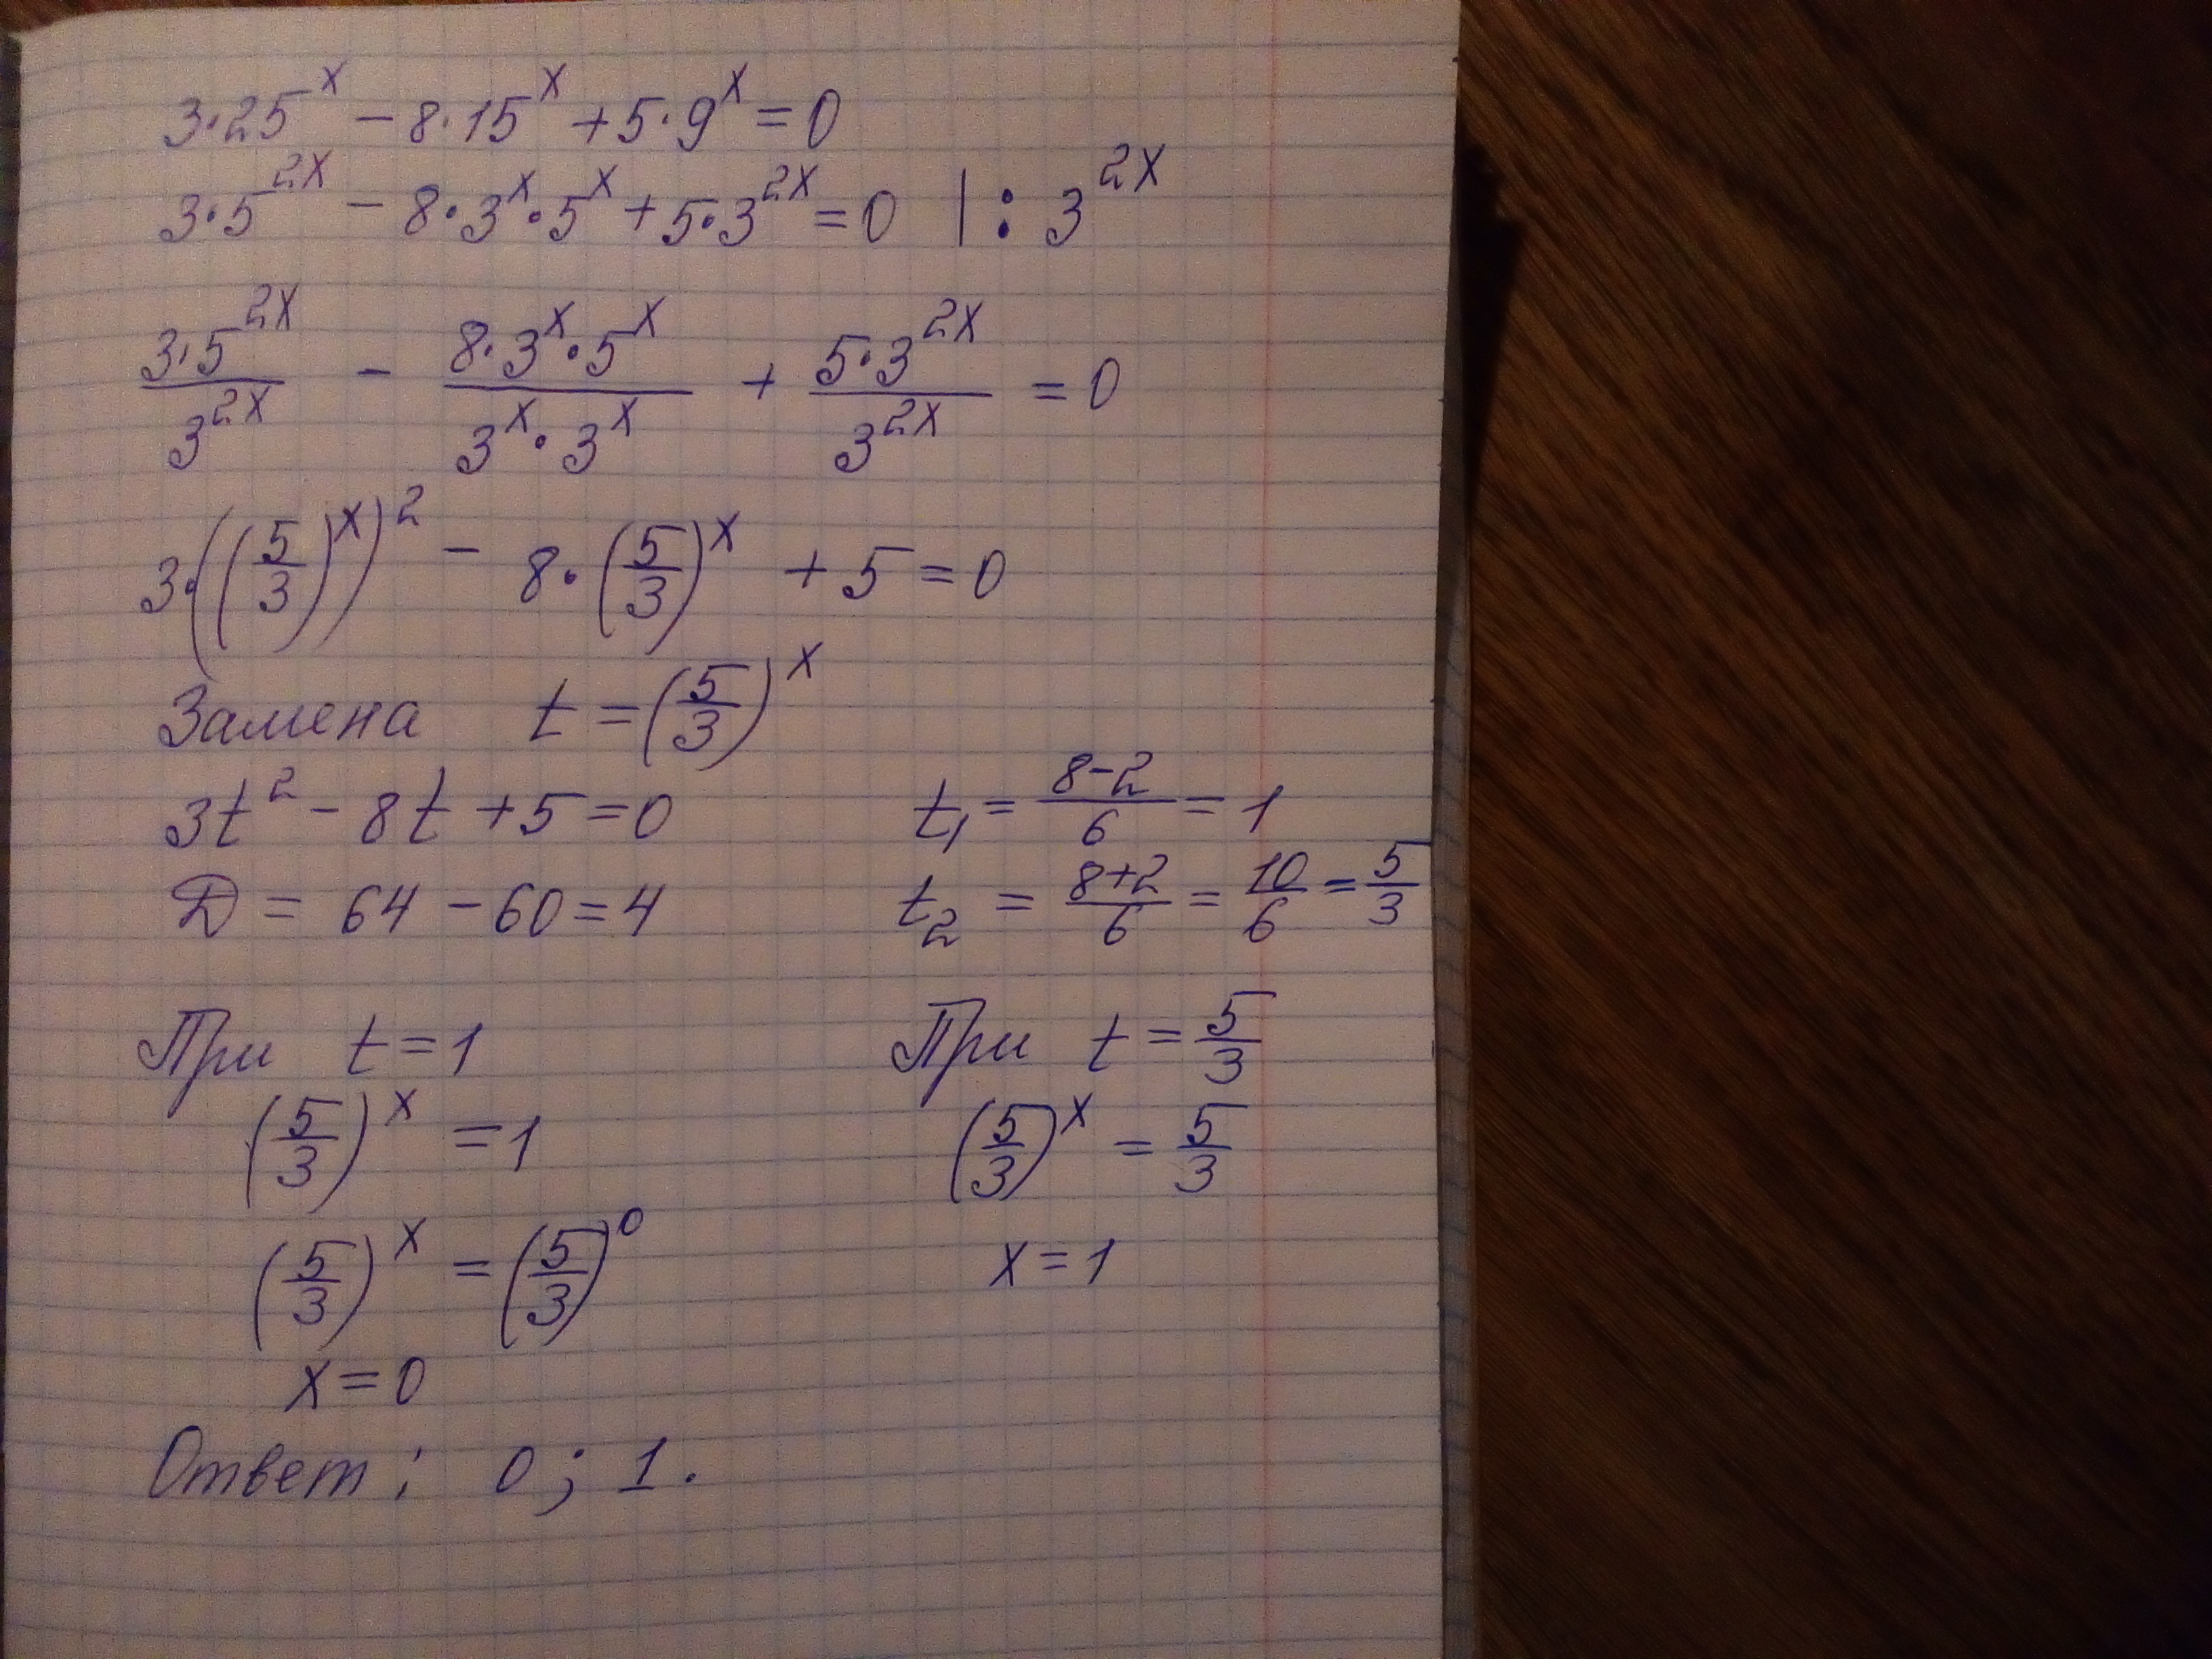 3·25^x − 8·15^x + 5·9^x = 0
3·5^{2x} − 8·3^x·5^x + 5·3^{2x} = 0 | : 3^{2x}
\frac{3·5^{2x}}{3^{2x}} − \frac{8·3^x·5^x}{3^x·3^x} + \frac{5·3^{2x}}{3^{2x}} = 0
3·((\frac{5}{3})^x)^2 − 8·(\frac{5}{3})^x + 5 = 0
Замена t = (\frac{5}{3})^x
3t^2 − 8t + 5 = 0
D = 64 − 60 = 4
t_1 = \frac{8−2}{6} = 1
t_2 = \frac{8+2}{6} = \frac{10}{6} = \frac{5}{3}
При t = 1
(\frac{5}{3})^x = 1
(\frac{5}{3})^x = (\frac{5}{3})^0
x = 0
При t = \frac{5}{3}
(\frac{5}{3})^x = \frac{5}{3}
x = 1
Ответ: 0; 1.